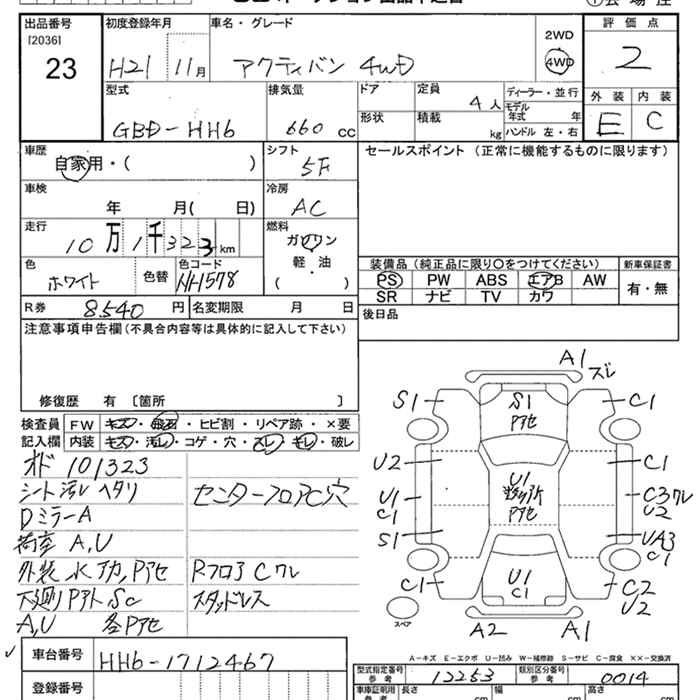 出品番号 初度登録年月 車名・グレード 評価点
[2036]
23 H21 11月 アクティバン 4WD 2WD 4WD 2
型式 排気量 ドア 定員 ディーラー・並行 外装 内装
GBD-HH6 660 cc 4人 モデル年式 年 E C
形状 積載 kg ハンドル 左・右
車歴 シフト セールスポイント (正常に機能するものに限ります)
自家用・( ) 5F
車検 冷房
年 月( 日) AC
走行 燃料
10万1千323km ガソリン
軽・油
( )
色 色替 色コード 装備品(純正品に限り○をつけてください) 新車保証書
ホワイト NH578 PS PW ABS エアB AW 有・無
SR ナビ TV カワ
R券 8,540円 名変期限 月 日 後日品
注意事項申告欄(不具合内容等は具体的に記入して下さい)
修復歴 有 [箇所 ]
検査員 FW キズ・飛石・ヒビ割・リペア跡・×要
記入欄 内装 キズ・汚レ・コゲ・穴・スレ・キレ・破レ
オド 101323
シート汚レ ヘタリ センターフロアC穴
DミラーA
荷室 A,U
外装 水アカ,Pアセ RフロアCワレ
下廻りPアト Sc スタッドレス
A,U 各Pアセ
A1
ズレ
S1 S1 C1
Pアセ
U2 C1
U1 U1 C3ワレ
C1 Pアセ U2
S1 UA3
C1
C1 U1 C2
C1 U2
スペア A2 A1
A-キズ E-エクボ U-凹み W-補修跡 S-サビ C-腐食 ××-交換済
車台番号 HH6-1712467
登録番号
型式指定番号 参考 12253 類別区分番号 参考 0014
車庫証明用 参考 長さ cm 幅 cm 高さ cm